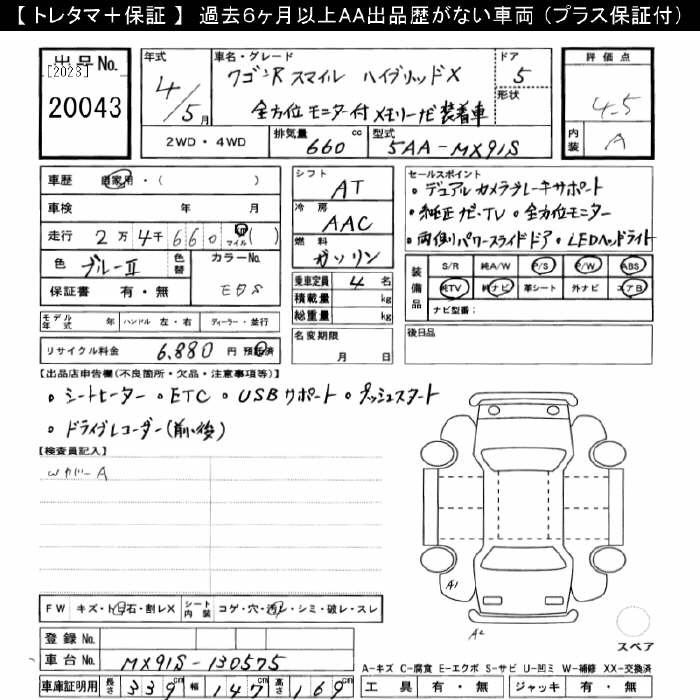 【 トレタマ＋保証 】 過去６ヶ月以上ＡＡ出品歴がない車両（プラス保証付）
出品No.
[2023]
20043
年式
4/5月
車名・グレード
ワゴンR スマイル ハイブリッドX
全方位モニター付 メモリーナビ装着車
ドア
5
形状
評価点
4.5
内装
A
2WD・4WD
排気量 660 cc
型式 5AA-MX91S
車歴 自家用・( )
車検 年 月
走行 2万4千660 km マイル ( )
色 ブルーII
色替
カラーNo.
保証書 有・無
シフト AT
冷房 AAC
燃料 ガソリン
乗車定員 4 名
積載量 kg
総重量 kg
セールスポイント
・デュアルカメラブレーキサポート
・純正ナビ・TV ・全方位モニター
・両側パワースライドドア ・LEDヘッドライト
装備品
S/R 純A/W P/S P/W ABS
純TV 純ナビ 革シート 外ナビ エアB
ナビ型番：
モデル年式 年 ハンドル 左・右 ディーラー・並行
リサイクル料金 6,880 円 預託済
名変期限
月 日
後日品
【出品店申告欄(不良箇所・欠品・注意事項等)】
・シートヒーター ・ETC ・USBサポート ・プッシュスタート
・ドライブレコーダー(前・後)
【検査員記入】
Wカバー A
FW キズ・ト石・割レX シート内装 コゲ・穴・汚レ・シミ・破レ・スレ
A1
A2
スペア
登録No.
車台No. MX91S-130575
A-キズ C-腐食 E-エクボ S-サビ U-凹ミ W-補修 XX-交換済
車庫証明用 長さ 339 cm 幅 147 cm 高さ 169 cm
工具 有・無 ジャッキ 有・無